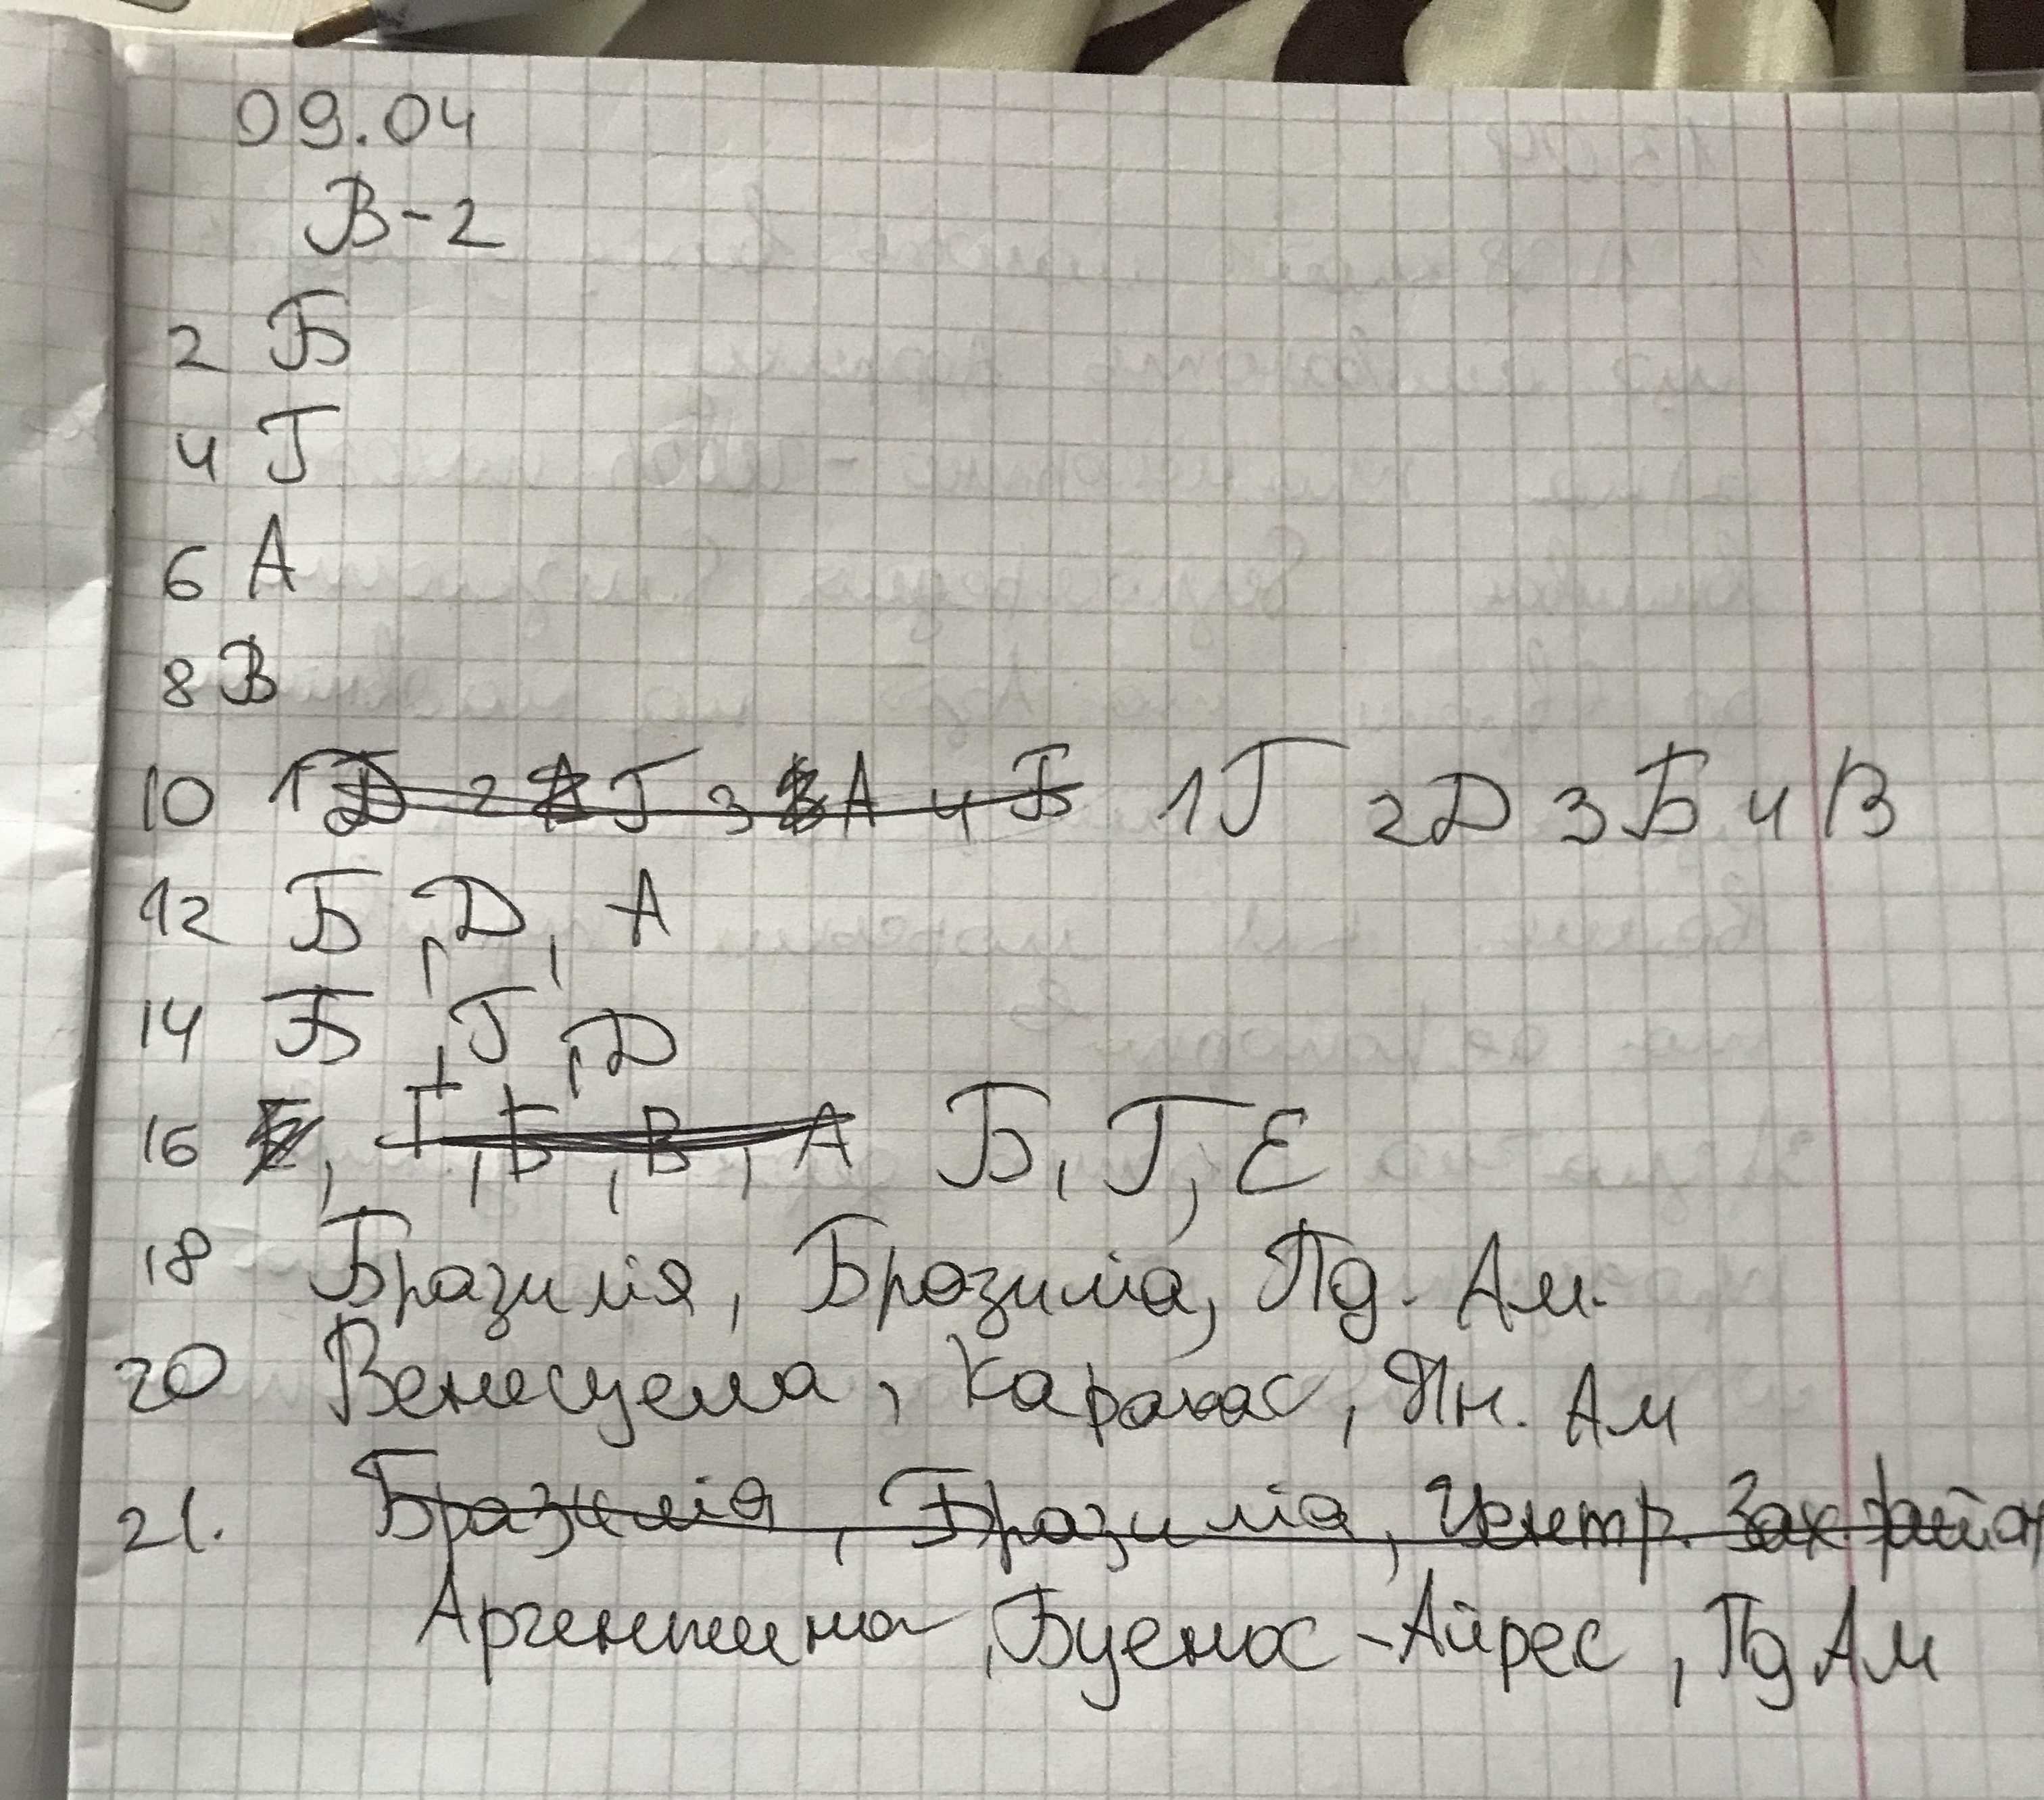 09.04
В-2
2 Б
4 Г
6 А
8 В
10 1Д 2 Г 3 А 4 Б 1Г 2Д 3Б 4В
12 Б, Д, А
14 Б, Г, Д
16 , Г, Б, В, А Б, Г, Е
18 Бразилія, Бразиліа, Пд. Ам.
20 Венесуела, Каракас, Пн. Ам
21. Бразилія, Бразиліа, Центр. Зах. район
Аргентина, Буенос-Айрес, Пд Ам